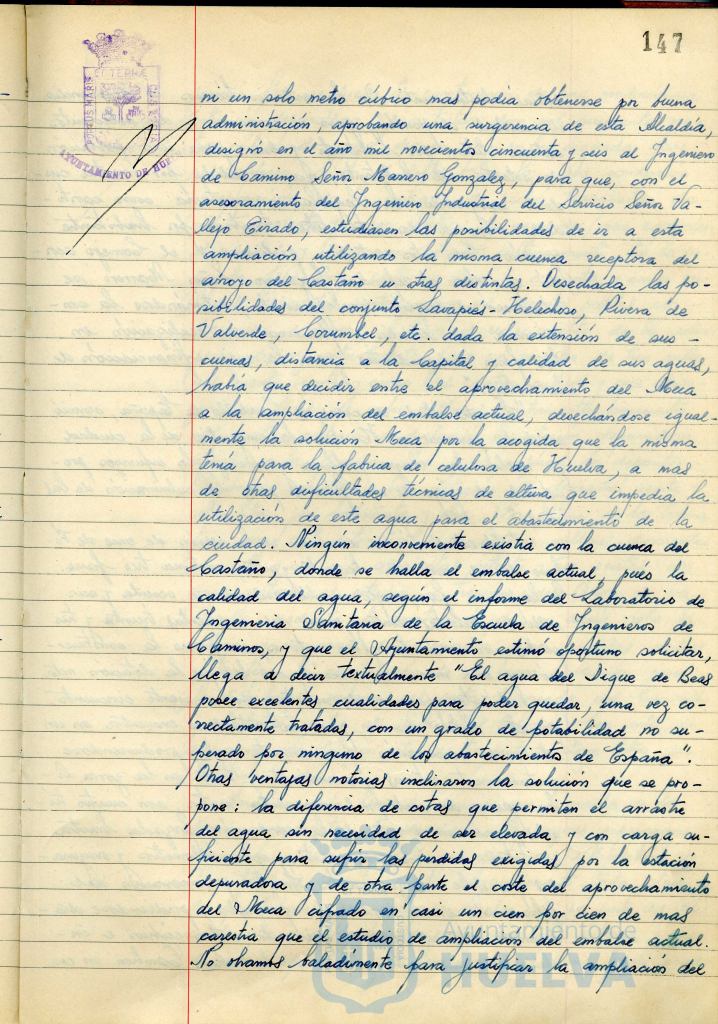 147
PORTUS MARIS
ET TERRÆ
AYUNTAMIENTO DE HUE
ni un solo metro cúbico mas podia obtenerse por buena
administración, aprobando una surgerencia de esta Alcaldía,
designó en el año mil novecientos cincuenta y seis al Ingeniero
de Camino Señor Marrero Gonzalez, para que, con el
asesoramiento del Ingeniero Industrial del Servicio Señor Va-
llejo Tirado, estudiasen las posibilidades de ir a esta
ampliación utilizando la misma cuenca receptora del
arroyo del Castaño u otras distintas. Desechada las po-
sibilidades del conjunto Lavapiés-Helechoso, Rivera de
Valverde, Corumbel, etc. dada la extensión de sus-
cuencas, distancia a la Capital y calidad de sus aguas,
había que decidir entre el aprovechamiento del Meca
a la ampliación del embalse actual, desechándose igual-
mente la solución Meca por la acogida que la misma
tenía para la fabrica de celulosa de Huelva, a mas
de otras dificultades técnicas de altura que impedia la
utilización de este agua para el abastecimiento de la
ciudad. Ningún inconveniente existia con la cuenca del
Castaño, donde se halla el embalse actual, pués la
calidad del agua, según el informe del Laboratorio de
Ingenieria Sanitaria de la Escuela de Ingenieros de
Caminos, y que el Ayuntamiento estimó oportuno solicitar,
llega a decir textualmente "El agua del Dique de Beas
posee excelentes cualidades para poder quedar, una vez co-
rrectamente tratadas, con un grado de potabilidad no su-
perado por ninguno de los abastecimientos de España".
Otras ventajas notorias inclinaron la solución que se pro-
pone: la diferencia de cotas que permiten el arrastre
del agua sin necesidad de ser elevada y con carga su-
ficiente para sufrir las pérdidas exigidas por la estación
depuradora y de otra parte el coste del aprovechamiento
del Meca cifrado en casi un cien por cien de mas
carestia que el estudio de ampliación del embalse actual.
No obramos baladimente para justificar la ampliación del
Ayuntamiento de
HUELVA